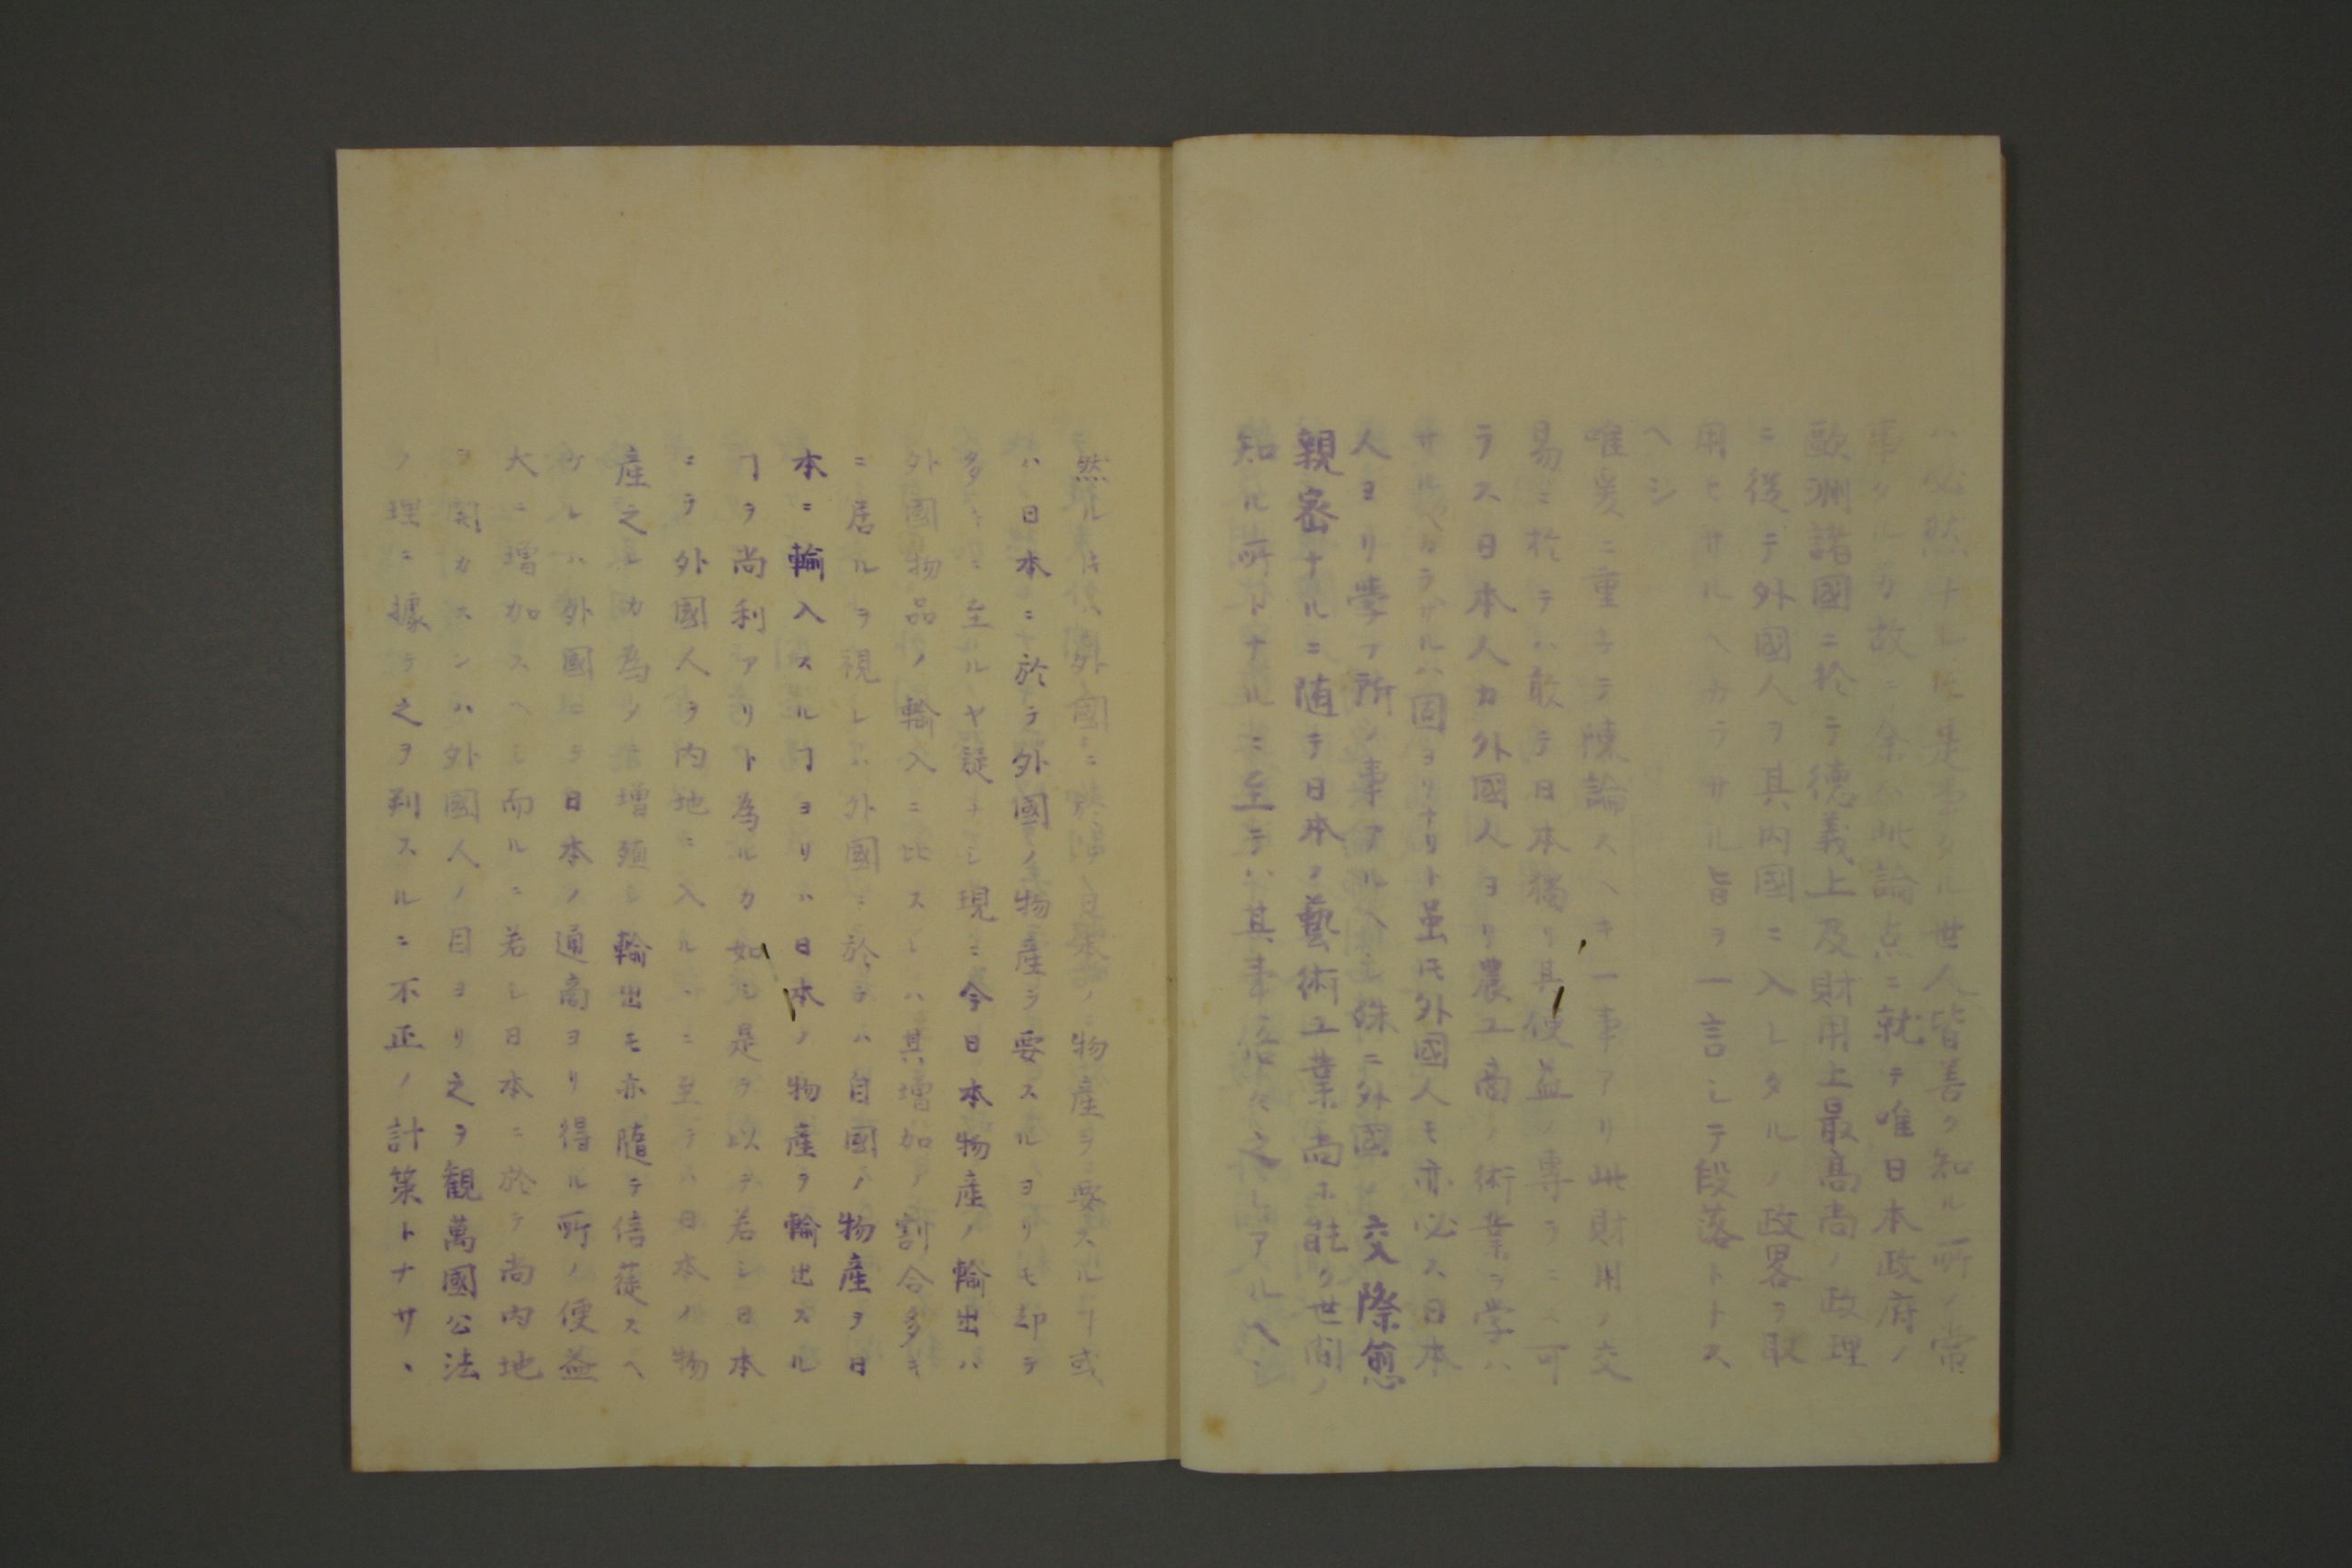 ハ必然ナレ𪜈是事タル世人皆善ク知ル所ノ常
事タルカ故ニ余ハ此論点ニ就テ唯日本政府ノ
歐洲諸國ニ於テ徳義上及財用上最高尚ノ政理
ニ從テ外國人ヲ其内國ニ入レタルノ政畧ヲ取
用セサルヘカラサル旨ヲ一言シテ段落トス
ヘシ
唯爰ニ重子テ陳論スヘキ一事アリ此財用ノ交
易ニ於テハ敢テ日本獨リ其便益ノ專ラ ハ可
ラス日本人カ外國人ヨリ農工商ノ術業ヲ学ハ
サルヘカラサルハ固ヨリナリト虽𪜈外國人モ亦必ス日本
人ヨリ學フ所ノ事アルヘシ殊ニ外國ノ交際愈
親密ナルニ随テ日本ノ藝術工業尚ホ能ク世間ノ
知ル所トナルニ至テハ其事倍々之レアルヘシ
然ル𪜈 外國ニ於 日本ノ物産ヲ要スルヿ或
ハ日本ニ於テ外國ノ物産ヲ要スルヨリモ却テ
多キニ至ルヤ疑ナシ現ニ今日本物産ノ輸出ハ
外國物品ノ輸入ニ比スレハ其増加ノ割合多キ
ニ居ルヲ視レハ外國ニ於テハ自國ノ物産ヲ日
本ニ輸入スルヿヨリハ日本ノ物産ヲ輸出スル
ヿヲ尚利アリト為ルカ如シ是ヲ以テ若シ日本
ニテ外國人ヲ内地ニ入ルヽニ至テハ日本ノ物
産之レカ為メ 増殖シ輸出モ亦随テ倍蓰スヘ
ケレハ外國ニテ日本ノ通商ヨリ得ル所ノ便益
大ニ増加スヘシ而ルニ若シ日本ニ於テ尚内地
ヲ開カスンハ外國人ノ目ヨリ之ヲ観萬國公法
ノ理ニ據テ之ヲ判スルニ不正ノ計策トナサヽ